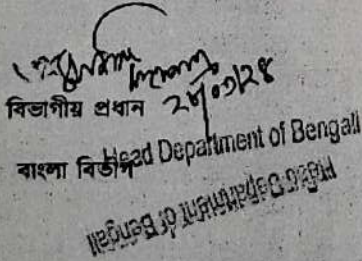 বিভাগীয় প্রধান
বাংলা বিভাগ
Head Department of Bengali
Head Department of Bengali